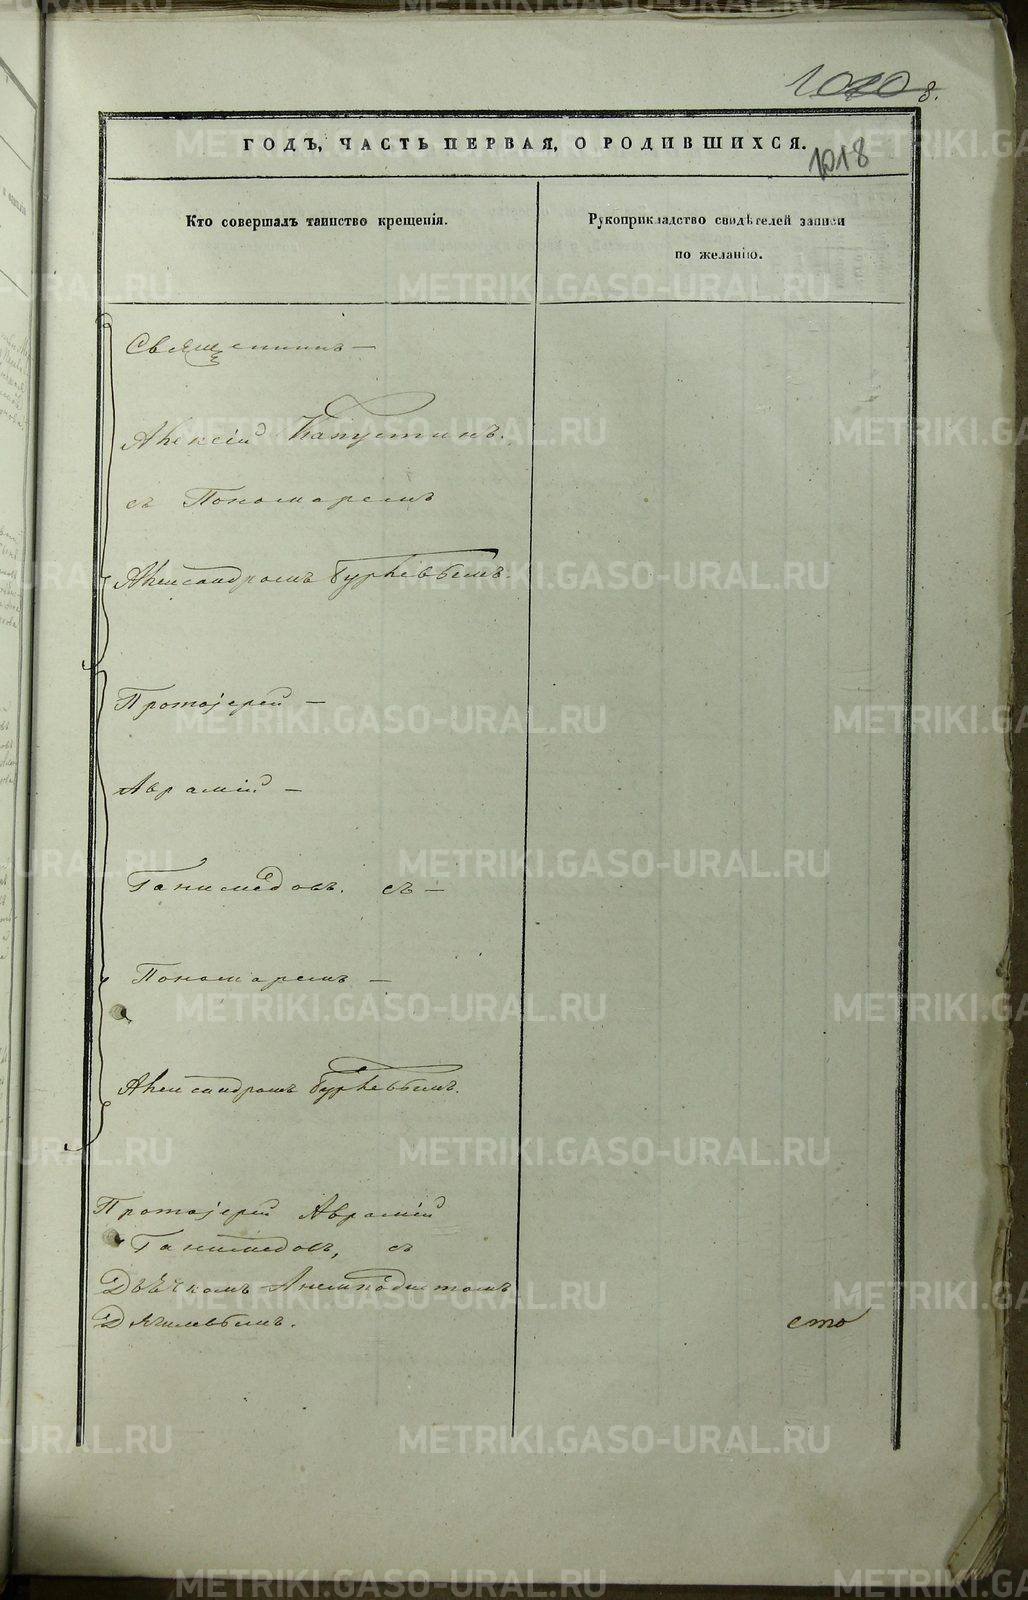 1020 8.
ГОДЪ, ЧАСТЬ ПЕРВАЯ, О РОДИВШИХСЯ.
1018
Кто совершалъ таинство крещенія.
Рукоприкладство свидѣтелей записи
по желанію.
Священникъ —
Алексій Капустинъ.
съ Пономаремъ
Александромъ Гурьевымъ.
Протоіерей —
Аврамій —
Ганимедовъ. съ —
Пономаремъ —
Александромъ Гурьевымъ.
Протоіерей Аврамій
Ганимедовъ, съ
Дьячкомъ Анемподистомъ
сто
METRIKI.GASO-URAL.RU